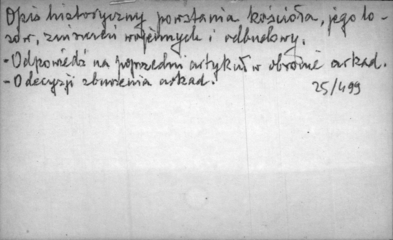 Opis historyczny powstania kościoła, jego lo-
sów, zniszczeń wojennych i odbudowy.
- Odpowiedź na poprzedni artykuł w obronie arkad.
- O decyzji zburzenia arkad.
25/499